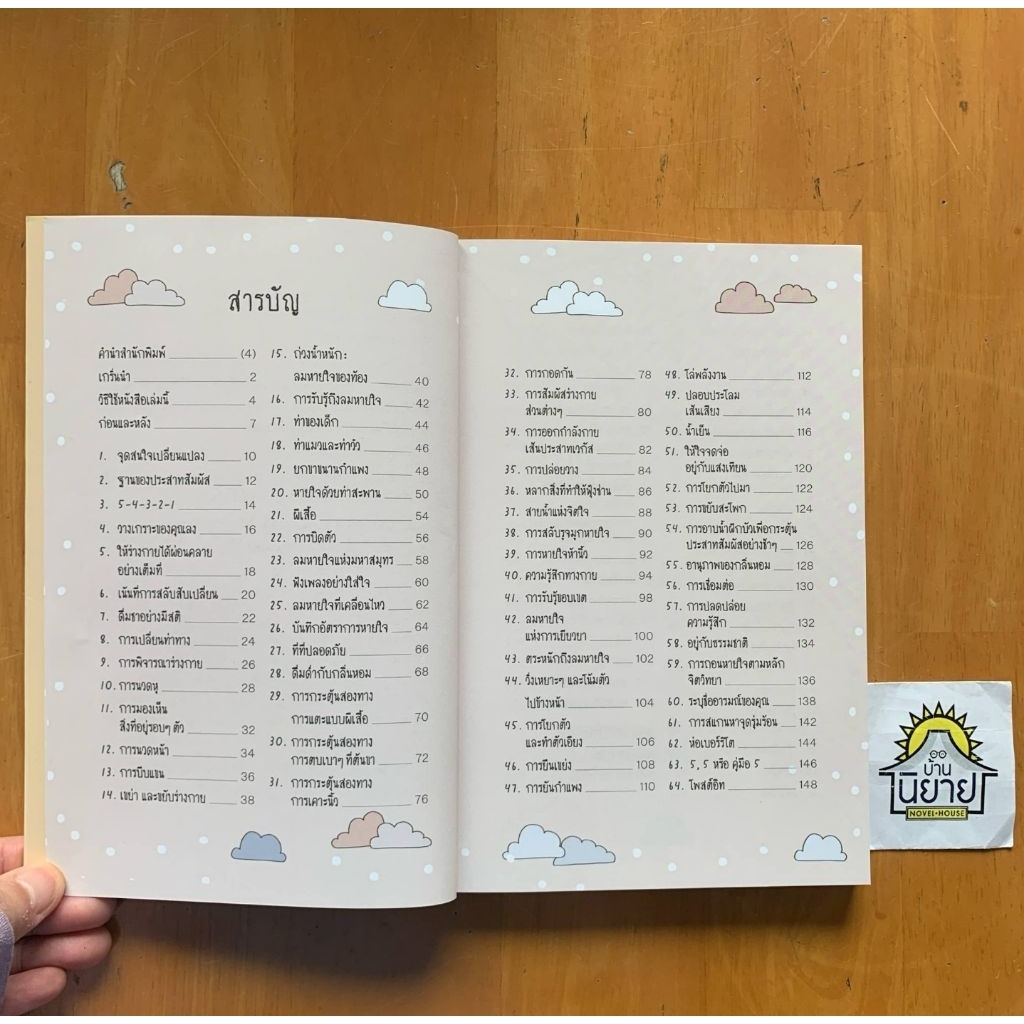 สารบัญ
คำนำสำนักพิมพ์ (4)
เกริ่นนำ 2
วิธีใช้หนังสือเล่มนี้ 4
ก่อนและหลัง 7
1. จุดสนใจเปลี่ยนแปลง 10
2. ฐานของประสาทสัมผัส 12
3. 5-4-3-2-1 14
4. วางเกราะของคุณลง 16
5. ให้ร่างกายได้ผ่อนคลาย
อย่างเต็มที่ 18
6. เน้นที่การสลับสับเปลี่ยน 20
7. ดื่มชาอย่างมีสติ 22
8. การเปลี่ยนท่าทาง 24
9. การพิจารณาร่างกาย 26
10. การนวดหู 28
11. การมองเห็น
สิ่งที่อยู่รอบๆ ตัว 32
12. การนวดหน้า 34
13. การบีบแขน 36
14. เขย่า และขยับร่างกาย 38
15. ถ่วงน้ำหนัก:
ลมหายใจของท้อง 40
16. การรับรู้ถึงลมหายใจ 42
17. ท่าของเด็ก 44
18. ท่าแมวและท่าวัว 46
19. ยกขาขนานกำแพง 48
20. หายใจด้วยท่าสะพาน 50
21. ผีเสื้อ 54
22. การบิดตัว 56
23. ลมหายใจแห่งมหาสมุทร 58
24. ฟังเพลงอย่างใส่ใจ 60
25. ลมหายใจที่เคลื่อนไหว 62
26. บันทึกอัตราการหายใจ 64
27. ที่ที่ปลอดภัย 66
28. ดื่มด่ำกับกลิ่นหอม 68
29. การกระตุ้นสองทาง
การแตะแบบผีเสื้อ 70
30. การกระตุ้นสองทาง
การตบเบาๆ ที่ต้นขา 72
31. การกระตุ้นสองทาง
การเคาะนิ้ว 76
32. การกอดกัน 78
33. การสัมผัสร่างกาย
ส่วนต่างๆ 80
34. การออกกำลังกาย
เส้นประสาทเวกัส 82
35. การปล่อยวาง 84
36. หลากสิ่งที่ทำให้ฟุ้งซ่าน 86
37. สายน้ำแห่งจิตใจ 88
38. การสลับรูจมูกหายใจ 90
39. การหายใจห้านิ้ว 92
40. ความรู้สึกทางกาย 94
41. การรับรู้ขอบเขต 98
42. ลมหายใจ
แห่งการเยียวยา 100
43. ตระหนักถึงลมหายใจ 102
44. วิ่งเหยาะๆ และโน้มตัว
ไปข้างหน้า 104
45. การโยกตัว
และทำตัวเอียง 106
46. การยืนเขย่ง 108
47. การยันกำแพง 110
48. ไล่พลังงาน 112
49. ปลอบประโลม
เส้นเสียง 114
50. น้ำเย็น 116
51. ให้ใจจดจ่อ
อยู่กับแสงเทียน 120
52. การโยกตัวไปมา 122
53. การขยับสะโพก 124
54. การอาบน้ำฝักบัวเพื่อกระตุ้น
ประสาทสัมผัสอย่างช้าๆ 126
55. อานุภาพของกลิ่นหอม 128
56. การเชื่อมต่อ 130
57. การปลดปล่อย
ความรู้สึก 132
58. อยู่กับธรรมชาติ 134
59. การถอนหายใจตามหลัก
จิตวิทยา 136
60. ระบุชื่ออารมณ์ของคุณ 138
61. การสแกนหาจุดรุ่มร้อน 142
62. ห่อเบอร์ริโต 144
63. 5, 5 หรือ คู่มือ 5 146
64. โพสต์อิท 148
บ้าน
นิยาย
NOVEL·HOUSE